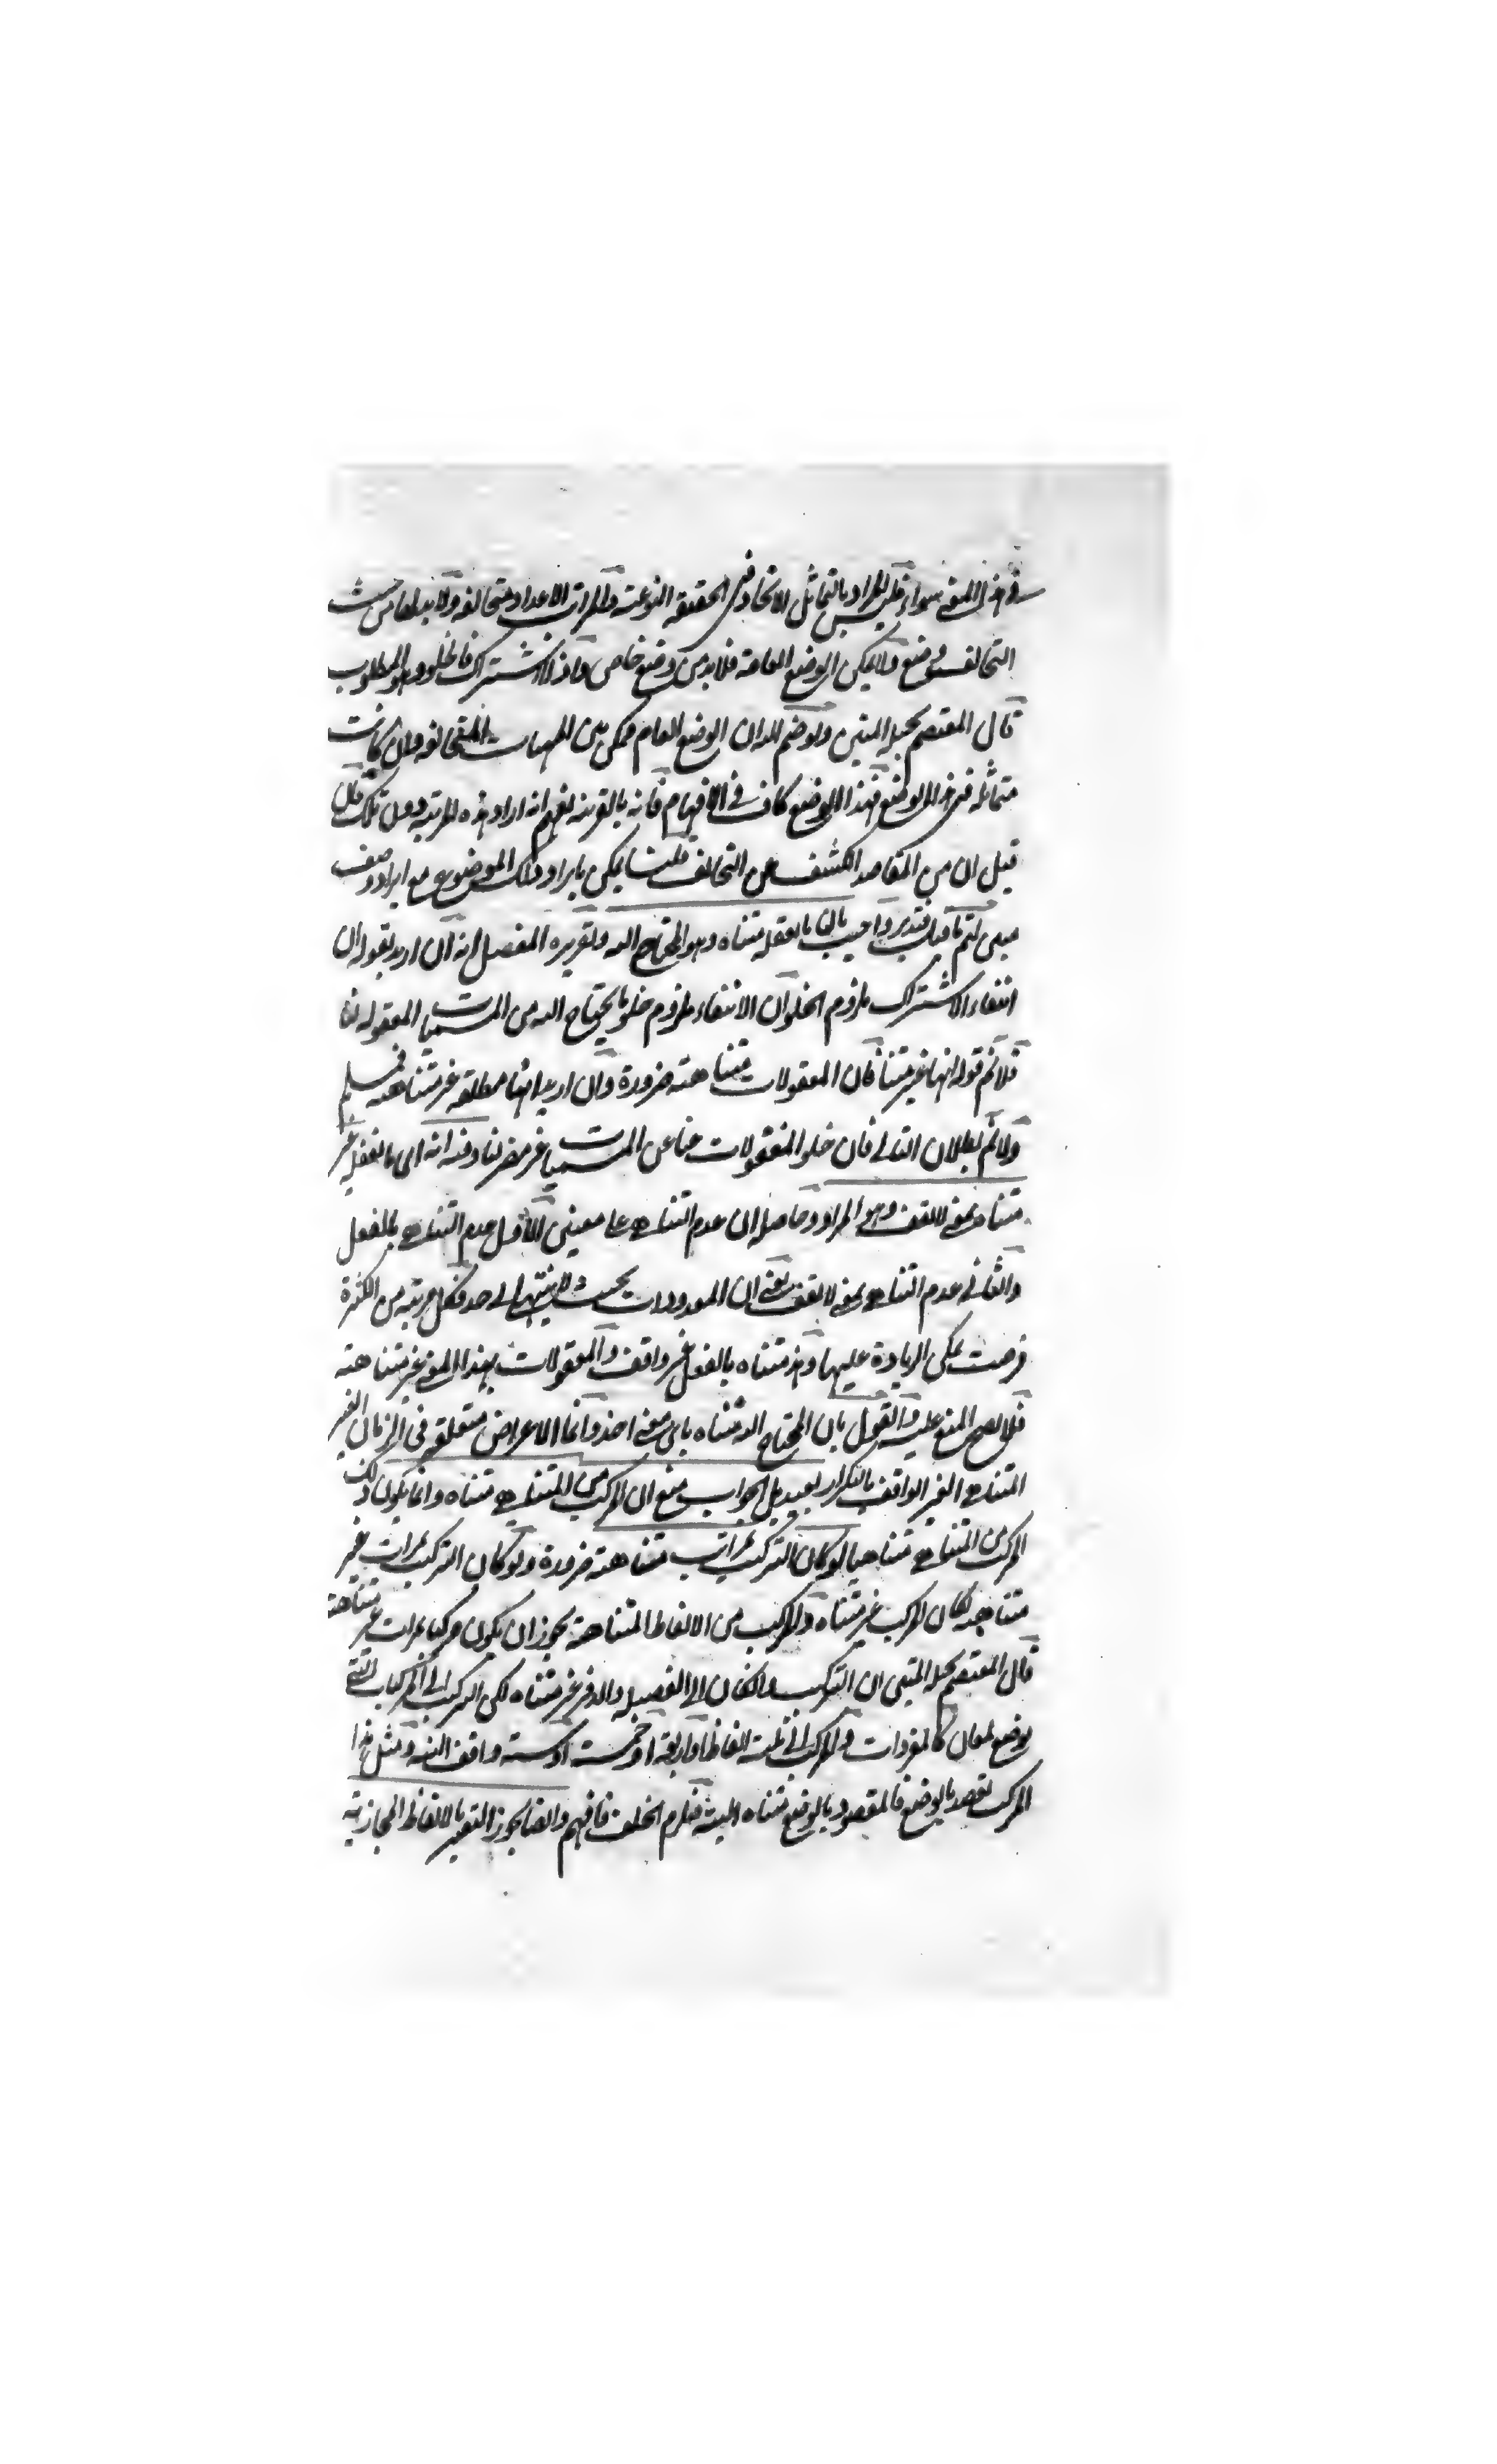 في هذا المعنى سواء فليس المراد بالتماثل الاتحاد في الحقيقة النوعية والمراتب الاعداد متخالفة ولا بد لها من حيث
التخالف وضع ولا يكفي الوضع العامة فلا بد من وضع خاص واذ لا اشتراك فالخلو وهو المطلوب
قال المعتصم بحبله المتين ولو ضم اليه ان الوضع العام ممكن بين المهيات المتخالفة وان كانت
متماثلة في هذا الوضع فهذا الوضع كاف في الافهام فانه بالقرينة يفهم انه اراد هذه المرتبة دون تلك فان
قيل ان من المقاصد الكشف عن التخالف قلت يمكن بايراد ذلك الموضوع مع ايراد وصف
مبين لتم فتدبر واجيب بان ما يعقله متناه وهو المحتاج اليه وتقريره المفصل انه ان اريد بقوله ان
انتفاء الاشتراك ملزوم الخلو ان الانتفاء ملزوم خلو ما يحتاج اليه من المسميات المعقولة لنا
فلا نم قوله انها غير متناه فان المعقولات متناهية ضرورة وان اريد انها مطلقة غير متناهية فمسلم
ولا نم بطلان التالي فان خلو المعقولات عنا عن المسميات غير مضر لنا وفيه انه اي ما نعقل غير
متناه بمعنى لا يقف وهو المراد وحاصله ان عدم التناهي على معنيين الاول عدم التناهي بالفعل
والثاني عدم التناهي بمعنى لا يقف يعني ان المعدودات بحيث لا ينتهي الى حد فكل مرتبة من الكثرة
فرضت يمكن الزيادة عليها وهذ متناه بالفعل غير واقف والمعقولات بهذا المعنى غير متناهية
فلا يصح المنع عليه والقول بان المحتاج اليه متناه باي معنى اخذ وانما الاعراض متعلقة في الزمان الغير
المتناهي الغير الواقف بالتكرار بعيد بل الجواب منع ان المركب من المتناهي متناه وانما يكون ذلك
المركب من المتناهي متناهيا لو كان التركيب بمراتب متناهية ضرورة ولو كان التركيب بمرات غير
متناهية لكان المركب غير متناه والمركب من الالفاظ المتناهية يجوز ان يكون مركبا بمرات غير متناهية
قال المعتصم بحبله المتين ان التركيب وان كان الى غير متناه لكن التركيب الى المركبات التي
يوضع لمعان كالمفردات والمركب الى ثلثة الفاظ او اربعة او خمسة او ستة واقف البتة ومثل هذا
المركب يقصد بالوضع فالمقصود بالوضع متناه البتة فيلزم الخلف فافهم وايضا يجوز التعبير بالالفاظ المجازية